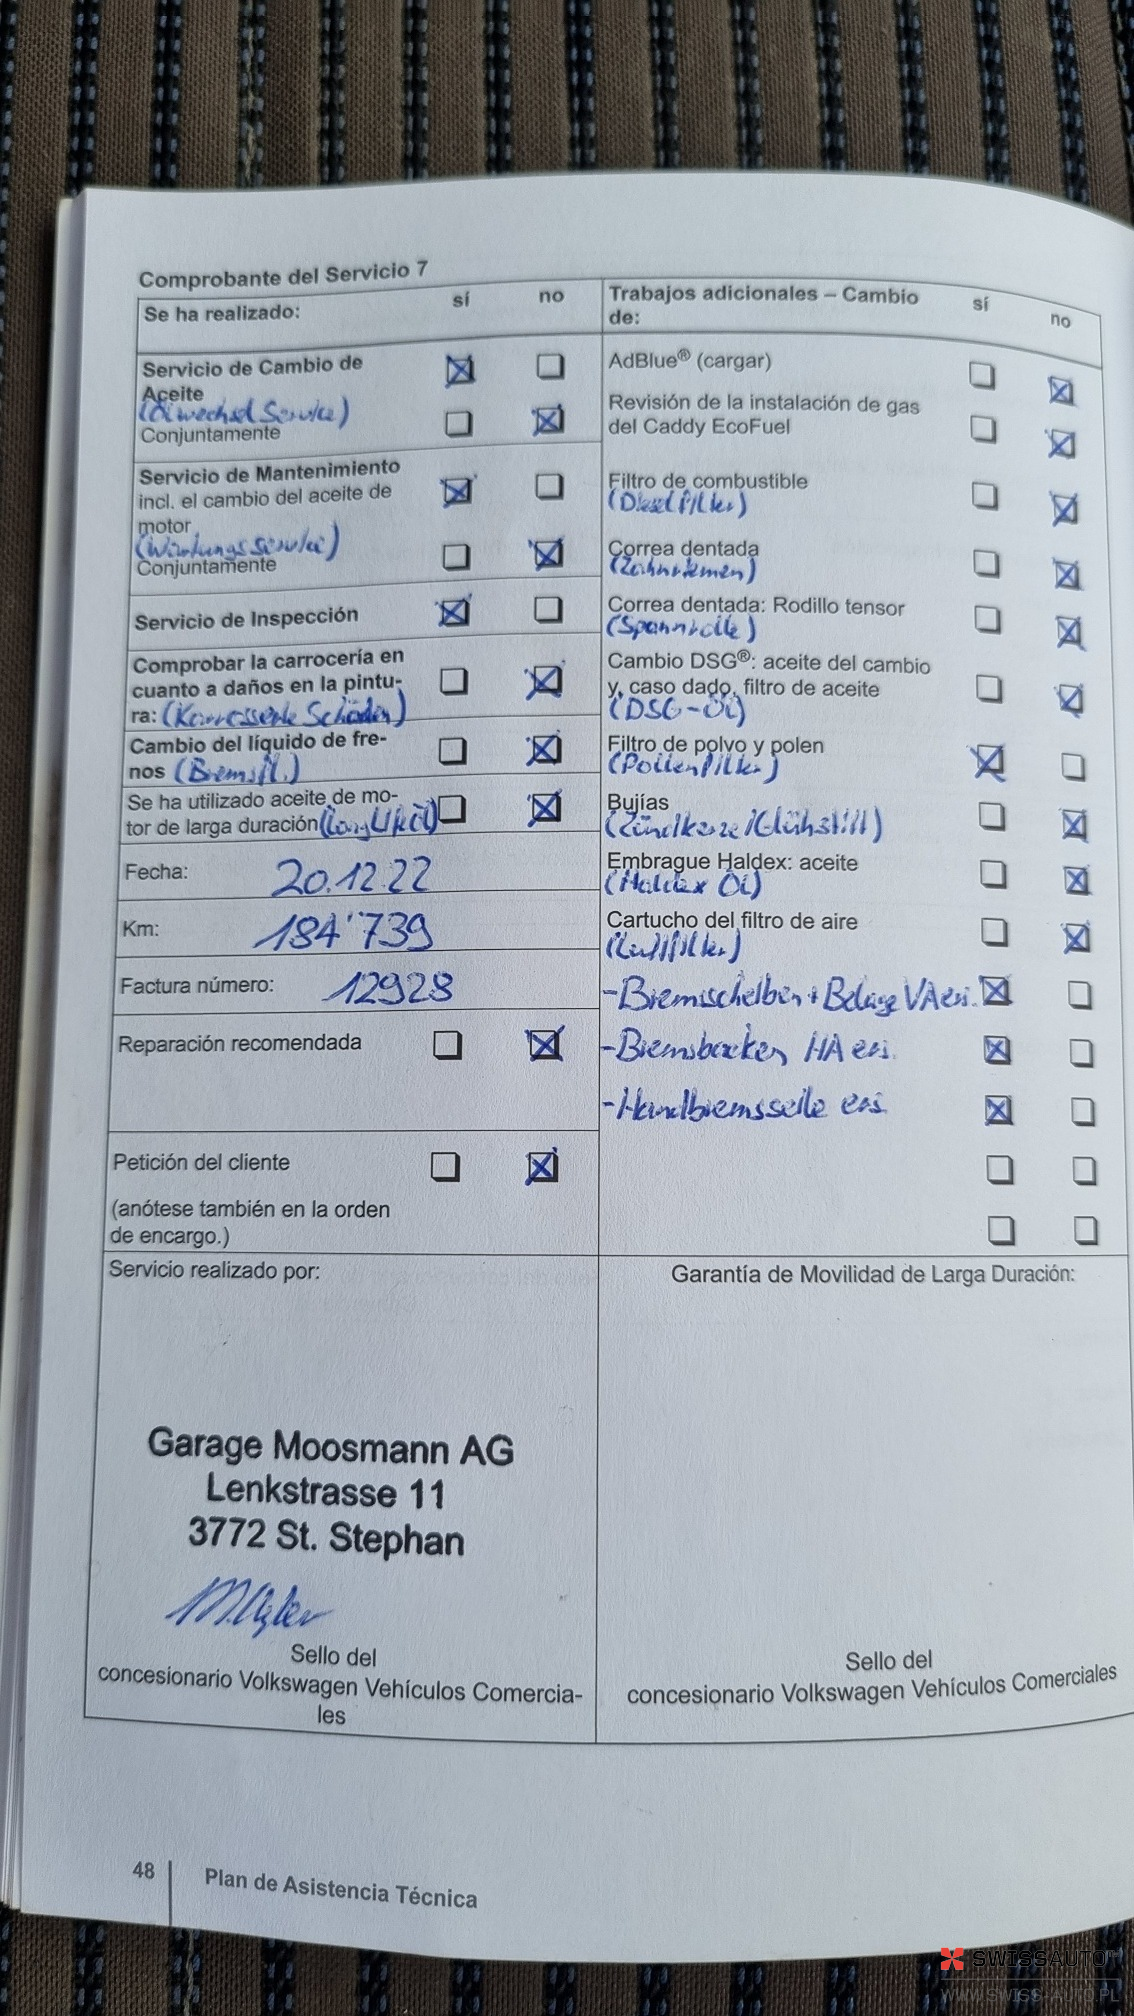 Comprobante del Servicio 7
Se ha realizado:
sí
no
Servicio de Cambio de
Aceite
(Ölwechsel Service)
Conjuntamente
Servicio de Mantenimiento
incl. el cambio del aceite de
motor
(Wartungsservice)
Conjuntamente
Servicio de Inspección
Comprobar la carrocería en
cuanto a daños en la pintu-
ra: (Karosserie Schäden)
Cambio del líquido de fre-
nos (Bremsfl.)
Se ha utilizado aceite de mo-
tor de larga duración (LongLife Öl)
Fecha: 20.12.22
Km: 184'739
Factura número: 12928
Reparación recomendada
Petición del cliente
(anótese también en la orden
de encargo.)
Servicio realizado por:
Garage Moosmann AG
Lenkstrasse 11
3772 St. Stephan
Sello del
concesionario Volkswagen Vehículos Comercia-
les
Trabajos adicionales – Cambio
de:
sí
no
AdBlue® (cargar)
Revisión de la instalación de gas
del Caddy EcoFuel
Filtro de combustible
(Dieselfilter)
Correa dentada
(Zahnriemen)
Correa dentada: Rodillo tensor
(Spannrolle)
Cambio DSG®: aceite del cambio
y, caso dado, filtro de aceite
(DSG-Öl)
Filtro de polvo y polen
(Pollenfilter)
Bujías
(Zündkerze/Glühstift)
Embrague Haldex: aceite
(Haldex Öl)
Cartucho del filtro de aire
(Luftfilter)
-Bremsscheiben + Beläge VA ers.
-Bremsbacken HA ers.
-Handbremsseile ers.
Garantía de Movilidad de Larga Duración:
Sello del
concesionario Volkswagen Vehículos Comerciales
48
Plan de Asistencia Técnica
SWISSAUTO
WWW.SWISS-AUTO.PL